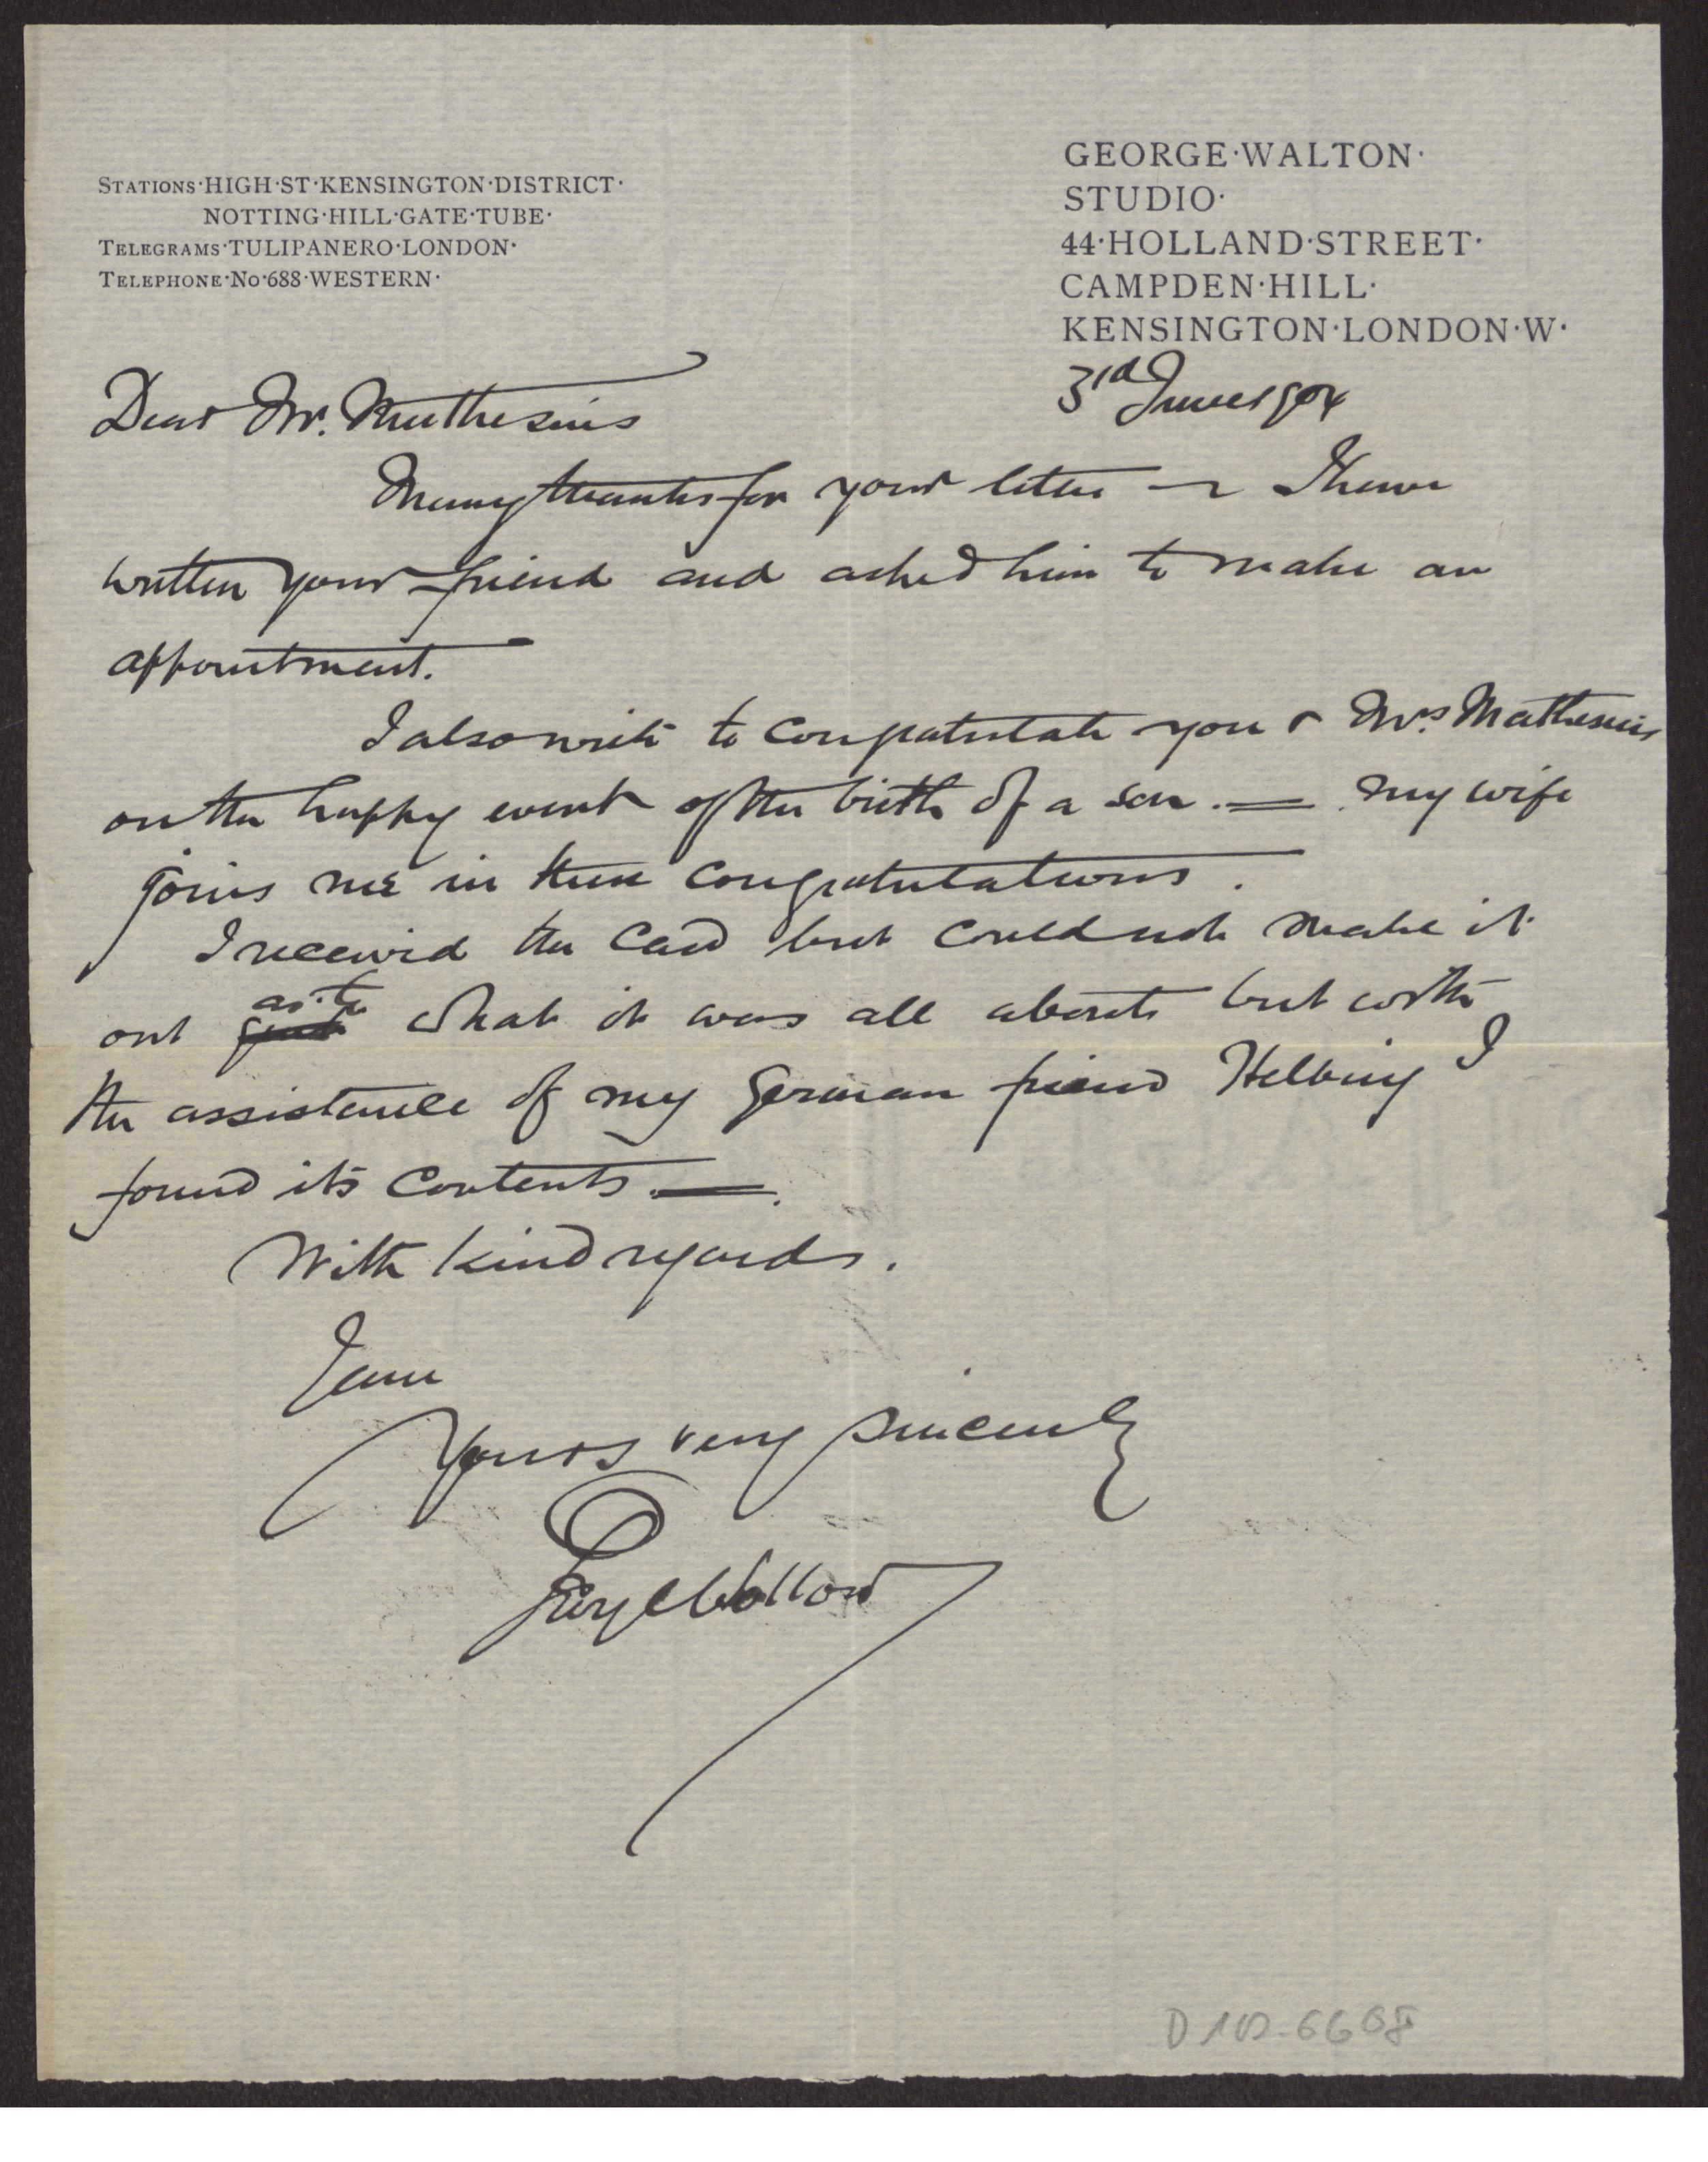 STATIONS·HIGH·ST·KENSINGTON·DISTRICT·
NOTTING·HILL·GATE·TUBE·
TELEGRAMS·TULIPANERO·LONDON·
TELEPHONE·No·688·WESTERN·
GEORGE·WALTON·
STUDIO·
44·HOLLAND·STREET·
CAMPDEN·HILL·
KENSINGTON·LONDON·W·
3rd June 1904
Dear Mr. Muthesius
Many thanks for your letter — I have
written your friend and asked him to make an
appointment.
I also write to congratulate you & Mrs. Mathesius
on the happy event of the birth of a son. — My wife
joins me in these congratulations.
I received the card but could not make it
out as to what it was all about but with
the assistance of my German friend Helbing I
found its contents —.
With kind regards.
I am
Yours very sincerely
George Walton
D 102-6668